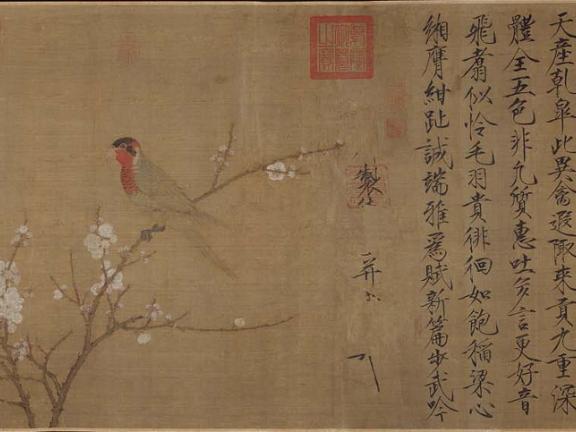 天產乾皐此異禽遐陬來貢九重深
體全五色非凡質惠吐多言更好音
飛翥似怜毛羽貴徘徊如飽稻粱心
緗膺紺趾誠端雅爲賦新篇步武吟
製
并